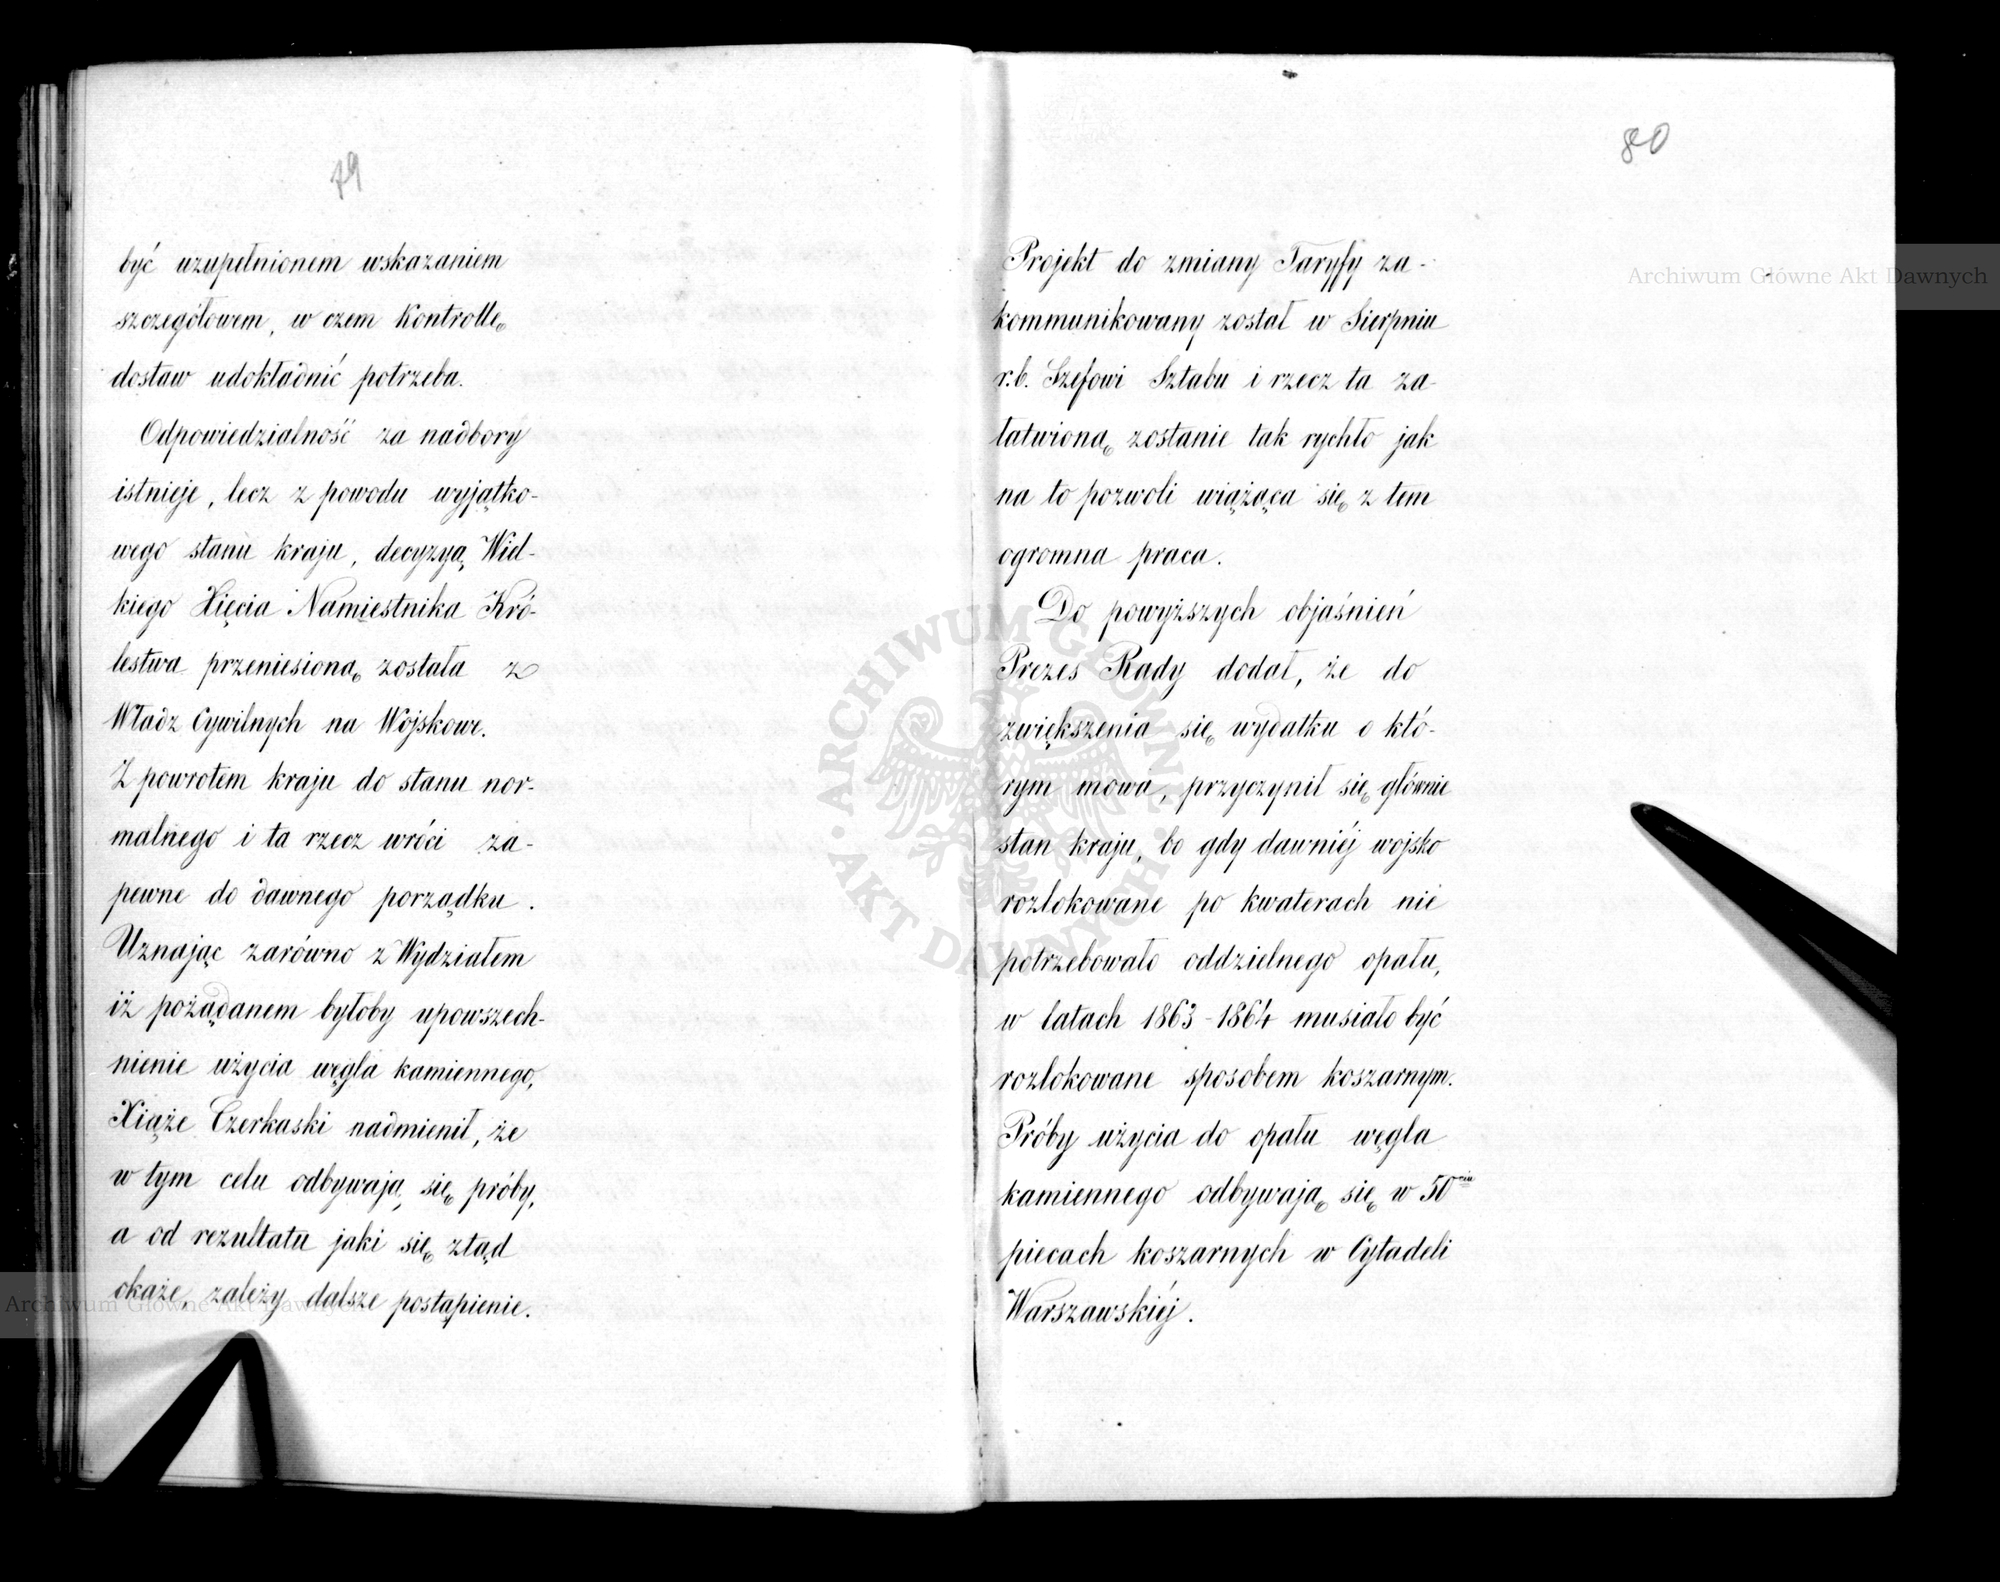 79
być uzupełnionem wskazaniem
szczegółowem, w czem Kontrollę
dostaw udokładnić potrzeba.
Odpowiedzialność za nadbory
istnieje, lecz z powodu wyjątko-
wego stanu kraju, decyzyą Wiel-
kiego Xięcia Namiestnika Kró-
lestwa przeniesioną została z
Władz Cywilnych na Wojskowe.
Z powrotem kraju do stanu nor-
malnego i ta rzecz wróci za-
pewne do dawnego porządku.
Uznając zarówno z Wydziałem
iż pożądanem byłoby upowszech-
nienie użycia węgla kamiennego,
Xiąże Czerkaski nadmienił, że
w tym celu odbywają się próby,
a od rezultatu jaki się ztąd
okaże, zależy dalsze postąpienie.
80
Projekt do zmiany Taryfy za-
kommunikowany został w Sierpniu
r.b. Szefowi Sztabu i rzecz ta za-
łatwioną zostanie tak rychło jak
na to pozwoli wiążąca się z tem
ogromna praca.
Do powyższych objaśnień
Prezes Rady dodał, że do
zwiększenia się wydatku o któ-
rym mowa, przyczynił się głównie
stan kraju, bo gdy dawniéj wojsko
rozlokowane po kwaterach nie
potrzebowało oddzielnego opału,
w latach 1863-1864 musiało być
rozlokowane sposobem koszarnym.
Próby użycia do opału węgla
kamiennego odbywają się w 50ciu
piecach koszarnych w Cytadeli
Warszawskiéj.
Archiwum Główne Akt Dawnych
Archiwum Główne Akt Dawnych
ARCHIWUM GŁÓWNE AKT DAWNYCH